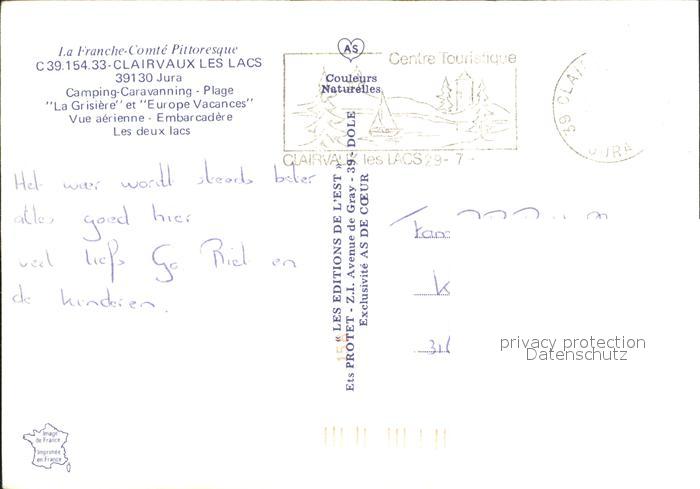 La Franche-Comté Pittoresque
C 39.154.33 - CLAIRVAUX LES LACS
39130 Jura
Camping-Caravanning - Plage
"La Grisière" et "Europe Vacances"
Vue aérienne - Embarcadère
Les deux lacs
Het weer wordt steeds beter
alles goed hier
veel liefs Go Riet en
de kinderen.
Image
de France
Imprimée
en France
AS
Couleurs
Naturelles
« LES EDITIONS DE L'EST »
Ets PROTET - Z.I. Avenue de Gray - 39 - DOLE
Exclusivité AS DE CŒUR
Centre Touristique
CLAIRVAUX les LACS 29-7-
39 CLAI
JURA
Fam
K
privacy protection
Datenschutz